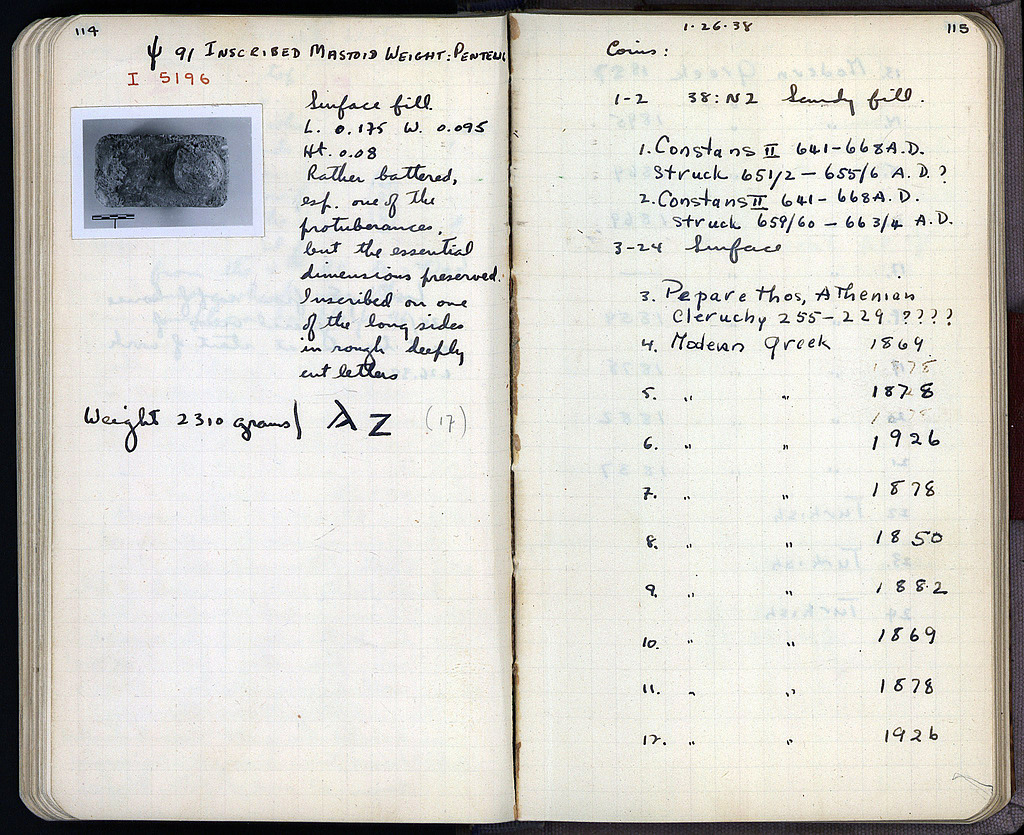 114
ψ 91 INSCRIBED MASTOID WEIGHT: PENTELI
I 5196
Surface fill
L. 0.175 W. 0.095
Ht. 0.08
Rather battered,
esp. one of the
protuberances,
but the essential
dimensions preserved.
Inscribed on one
of the long sides
in rough deeply
cut letters
Weight 2310 grams/ λ Z (17)
1·26·38
115
Coins:
1-2 38:NZ Sandy fill.
1. Constans II 641-668 A.D.
Struck 651/2 - 655/6 A.D.?
2. Constans II 641-668 A.D.
Struck 659/60 - 663/4 A.D.
3-24 Surface
3. Peparethos, Athenian
Cleruchy 255-229 ????
4. Modern Greek 1869
1878
5. " " 1878
6. " " 1926
7. " " 1878
8. " " 1850
9. " " 1882
10. " " 1869
11. " " 1878
12. " " 1926